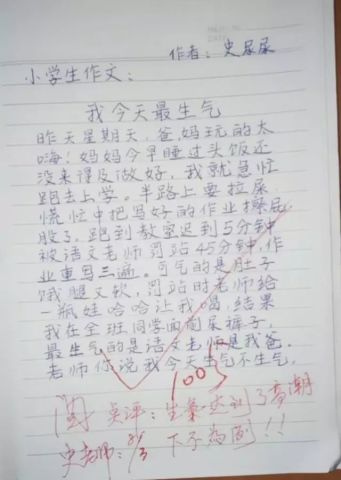 作者：史尿尿
小学生作文：
我今天最生气
昨天星期天，爸，妈玩的太
嗨！妈妈今早睡过头饭还
没来得及做好，我就急忙
跑去上学。半路上要拉屎
慌忙中把写好的作业擦屁
股了，跑到教室迟到5分钟
被语文老师罚站45分钟，作
业重写三遍。可气的是肚子
饿腿又软，罚站时老师给
一瓶娃哈哈让我喝，结果
我在全班同学面前尿裤子，
最生气的是语文老师是我爸。
老师你说我今天生气不生气。
100
阅 点评：生气达到了高潮
史老师：8/3 下不为例！！